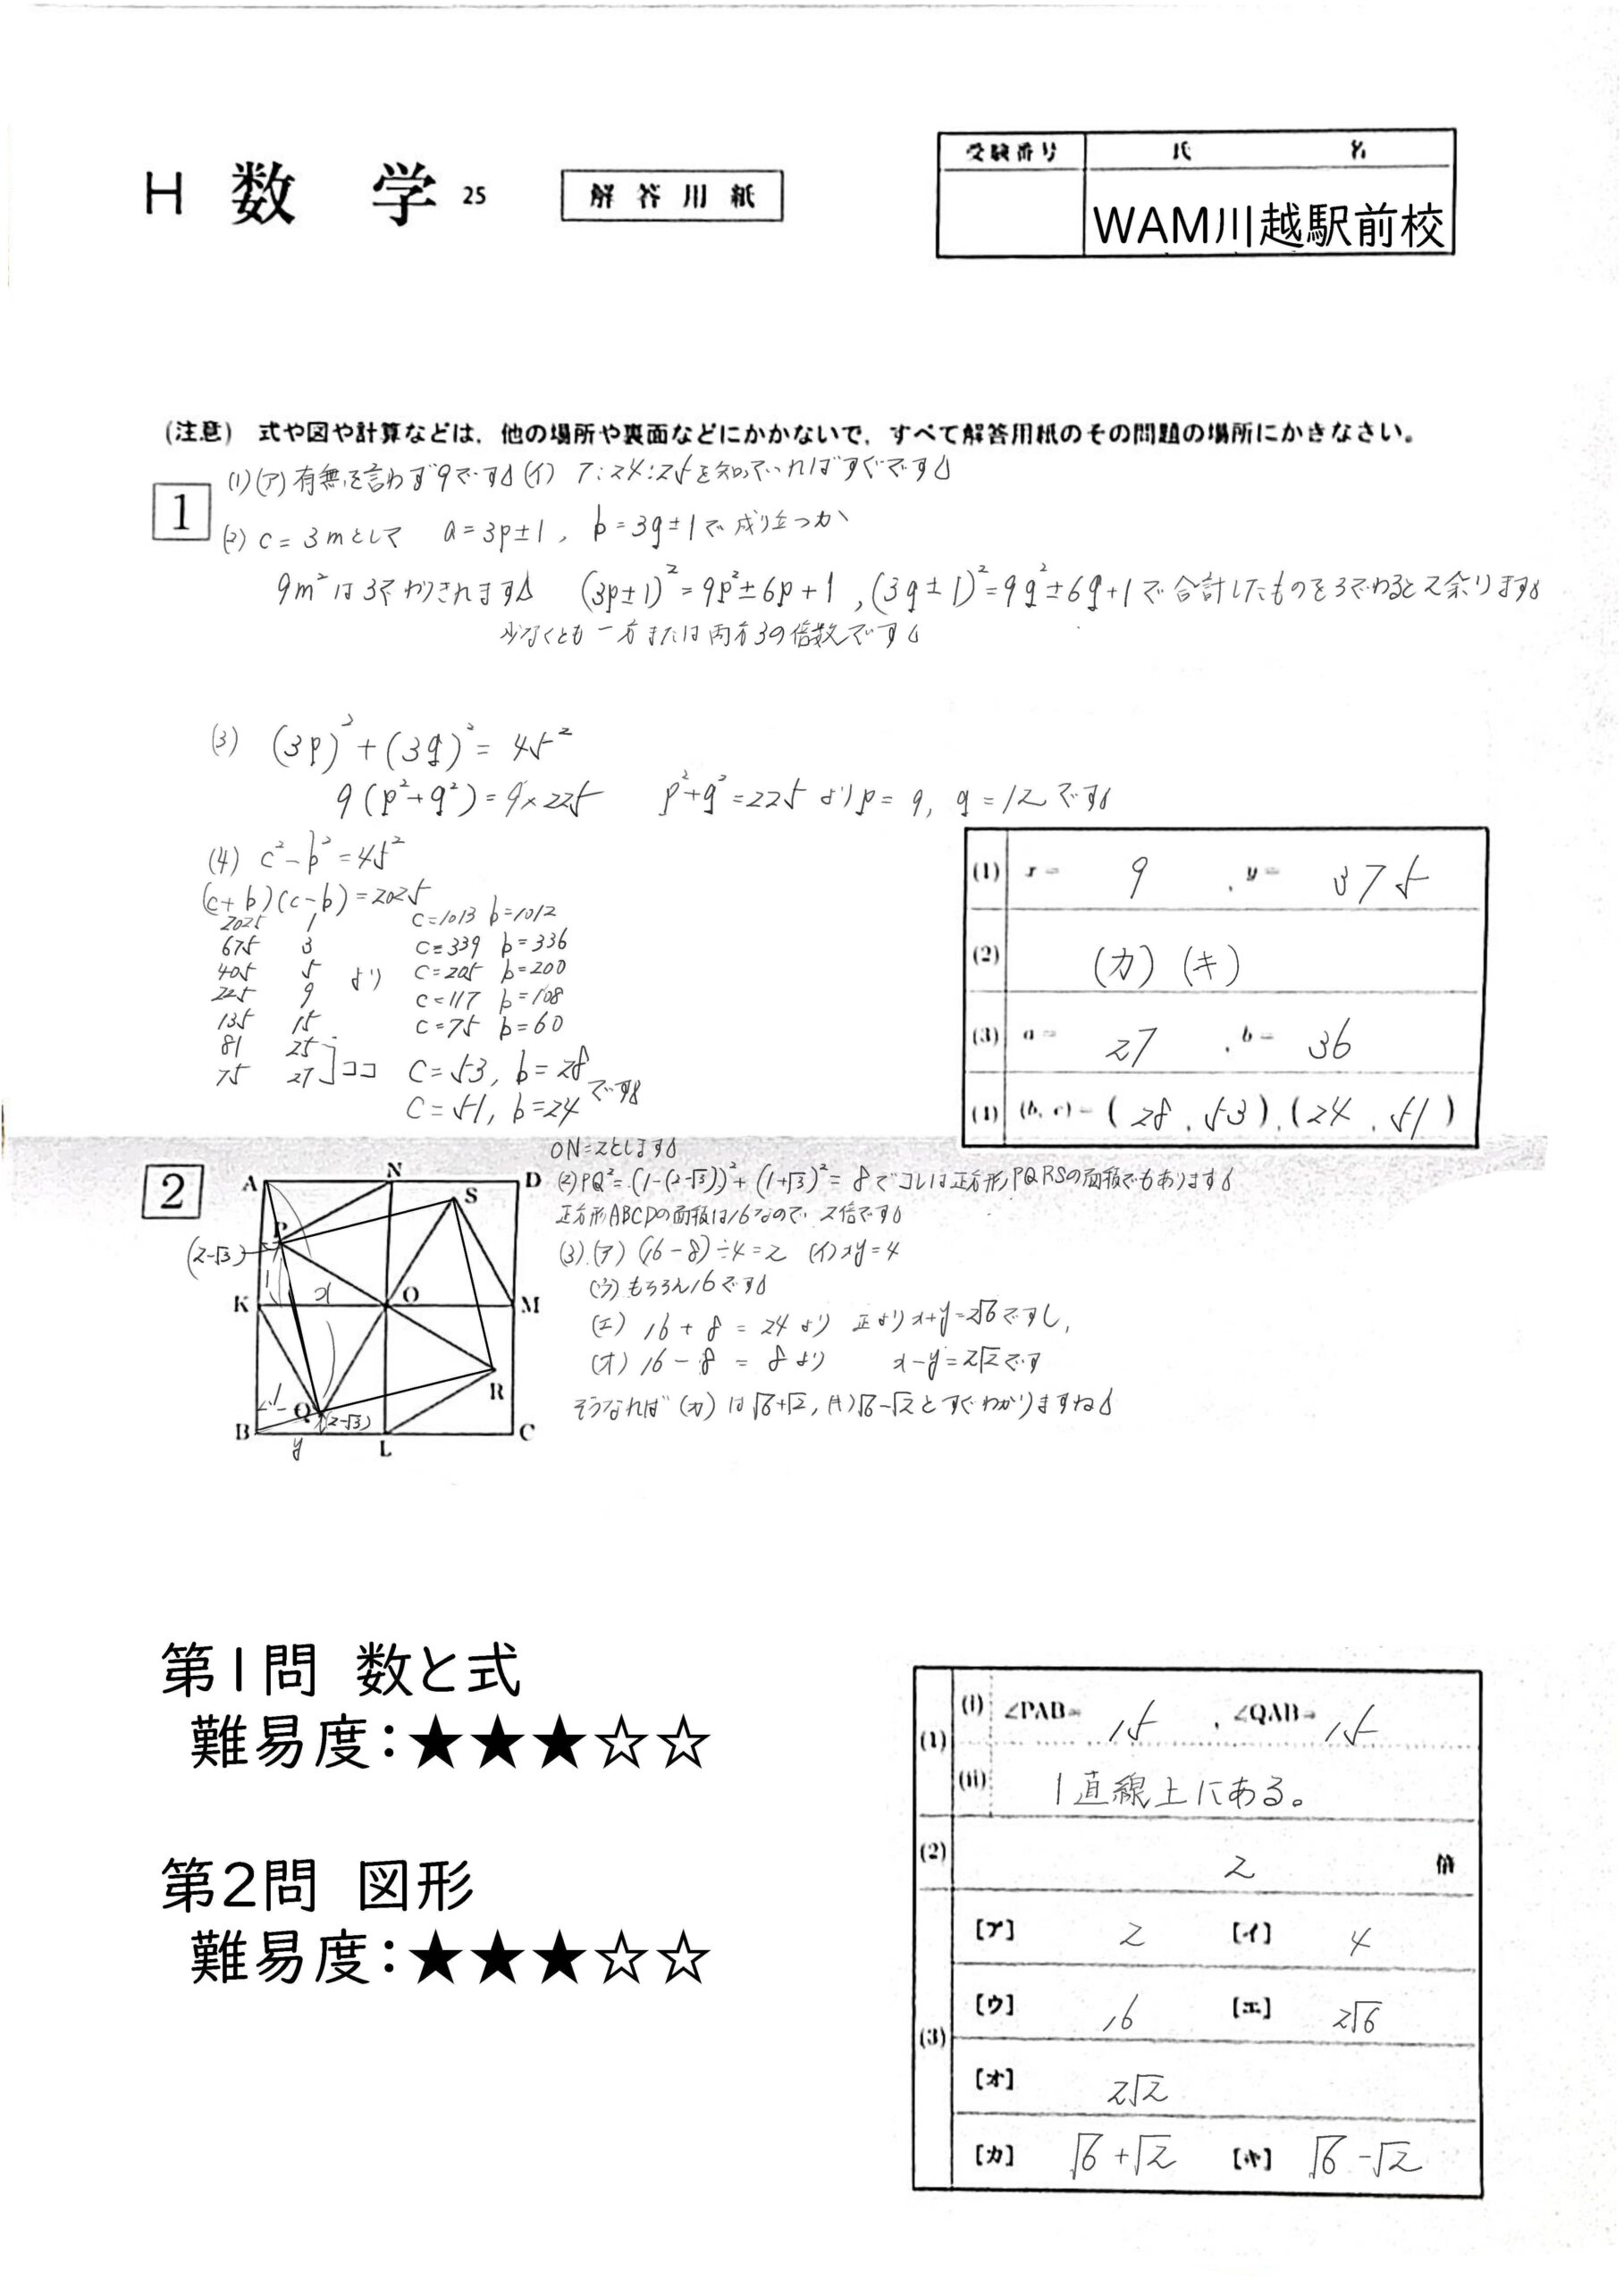 H 数 学 25
解 答 用 紙
受験番号 氏 名
WAM川越駅前校
(注意) 式や図や計算などは，他の場所や裏面などにかかないで，すべて解答用紙のその問題の場所にかきなさい。
1
(1)(ア) 有無を言わず9です (イ) 7:24:25を知っていればすぐです
(2) c = 3mとして a = 3p±1, b = 3q±1で成り立つか
9m²は3でわりきれます (3p±1)² = 9p²±6p+1, (3q±1)² = 9q²±6q+1で合計したものを3でわると2余ります
少なくとも一方または両方3の倍数です
(3) (3p)² + (3q)² = 45²
9(p²+q²) = 9×225 p²+q² = 225 よりp = 9, q = 12です
(4) c²-b² = 45²
(c+b)(c-b) = 2025
2025 1 c=1013 b=1012
675 3 c=339 b=336
405 5 より c=205 b=200
225 9 c=117 b=108
135 15 c=75 b=60
81 25 ココ c=53, b=28
75 27 c=51, b=24 です
(1) x = 9, y = 375
(2) (カ) (キ)
(3) a = 27, b = 36
(4) (b, c) = (28, 53), (24, 51)
2
ON=2とします
(2) PQ² = (1-(2-√3))² + (1+√3)² = 8でコレは正方形PQRSの面積でもあります
正方形ABCDの面積は16なので，2倍です
(3) (ア) (16-8)÷4=2 (イ) xy=4
(ウ) もちろん16です
(エ) 16+8 = 24より 正よりx+y=2√6ですし,
(オ) 16-8 = 8より x-y=2√2です
そうなれば (カ)は√6+√2, (キ)√6-√2とすぐわかりますね
A N D
S
P
(2-√3)
1 x
K O M
R
1 Q (2-√3)
B y L C
第1問 数と式
難易度：★★★☆☆
第2問 図形
難易度：★★★☆☆
(1) (i) ∠PAB= 15, ∠QAB= 15
(ii) 1直線上にある。
(2) 2 倍
(3) [ア] 2 [イ] 4
[ウ] 16 [エ] 2√6
[オ] 2√2
[カ] √6+√2 [キ] √6-√2